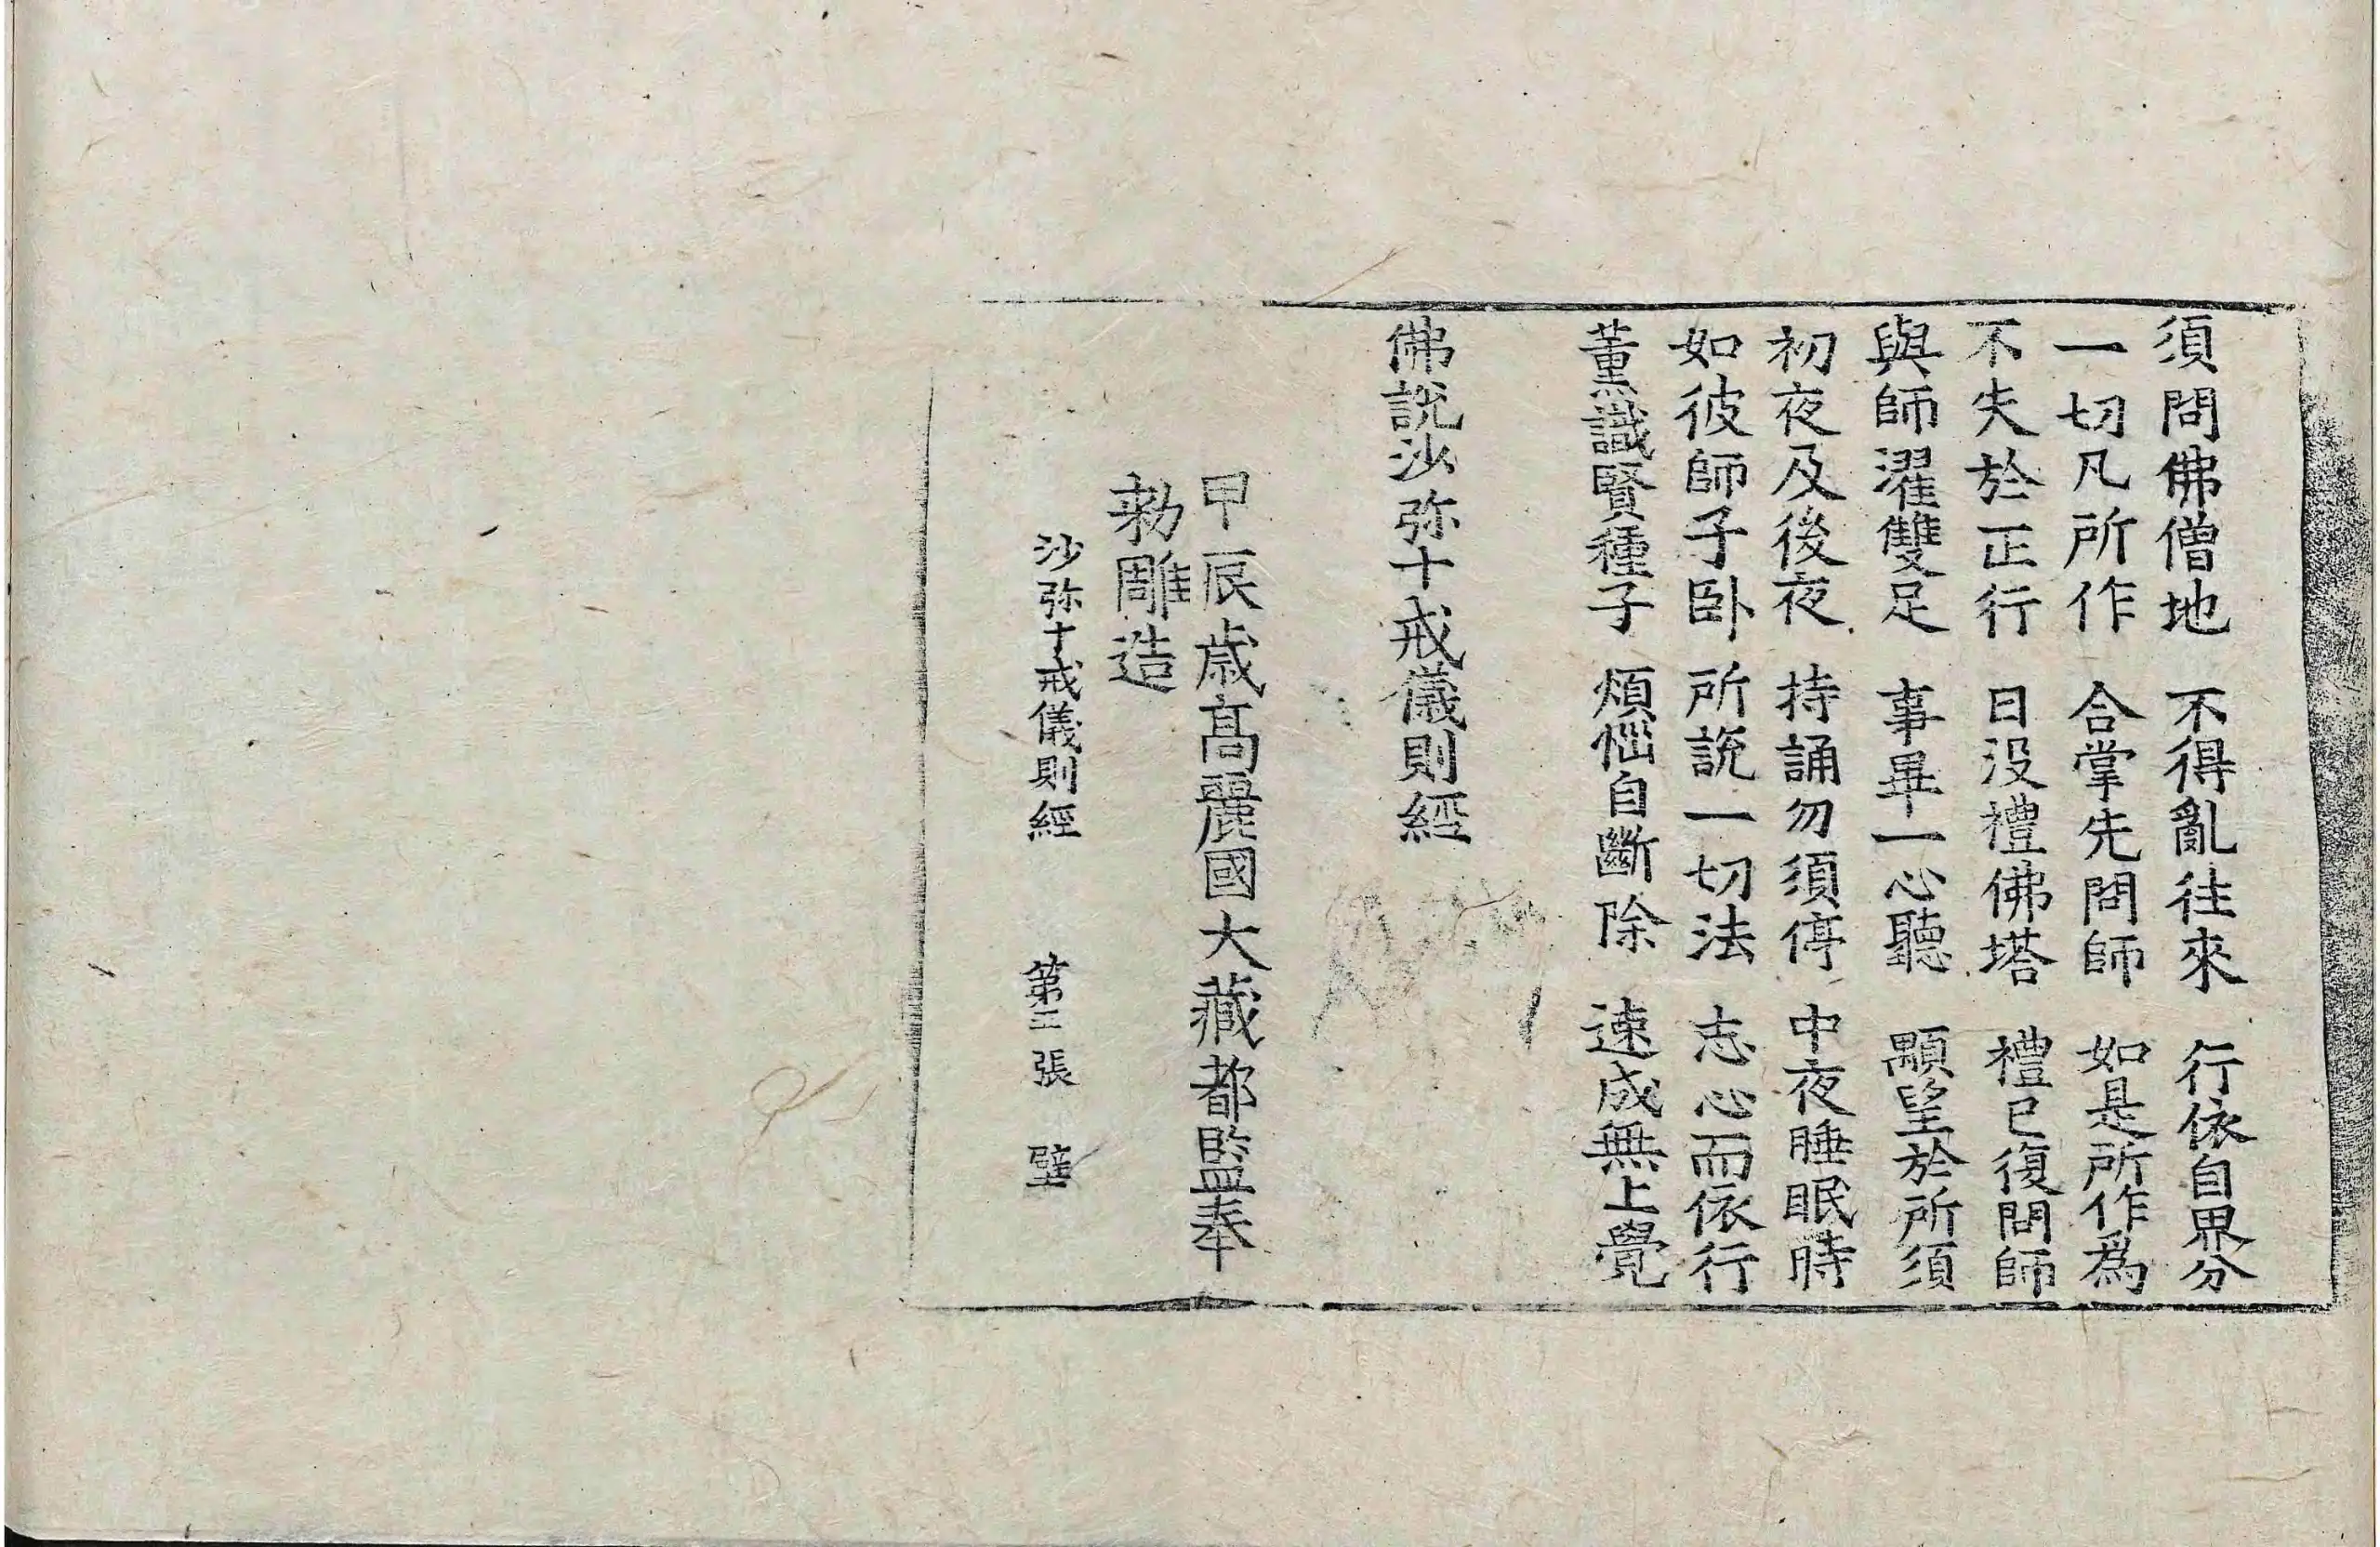 須問佛僧地 不得亂往來 行依自界分
一切凡所作 合掌先問師 如是所作爲
不失於正行 日没禮佛塔 禮已復問師
與師濯雙足 事畢一心聽 顒望於所須
初夜及後夜 持誦勿須停 中夜睡眠時
如彼師子卧 所説一切法 志心而依行
薫識賢種子 煩惱自斷除 速成無上覺
佛説沙弥十戒儀則經
甲辰歳髙麗國大藏都監奉
勑雕造
沙弥十戒儀則經 第 張 壁